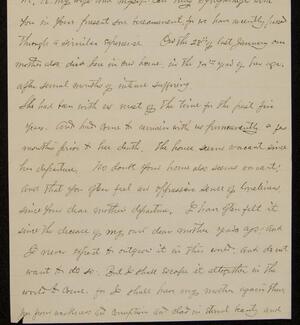 I, & my wife and myself can sympathize with
you in your present sore bereavement, for we have recently passed
through a similar experience. On the 28th of last January our
mother also died here in our home, in the year of her age,
after several months of intense suffering.
She had been with us most of the time for the past five
years. And had come to remain with us permanently a few
months prior to her death. The house seems vacant since
her departure. No doubt your home also seems vacant;
And that you often feel an oppressive sense of loneliness
since your dear mother's departure. I have often felt it
since the decease of my own dear mother years ago; and
I never expect to outgrow it in this world. And do not
want to do so. But I shall escape it altogether in the
world to come. for I shall have my mother again then,
free from weakness and corruption and clad in eternal beauty and